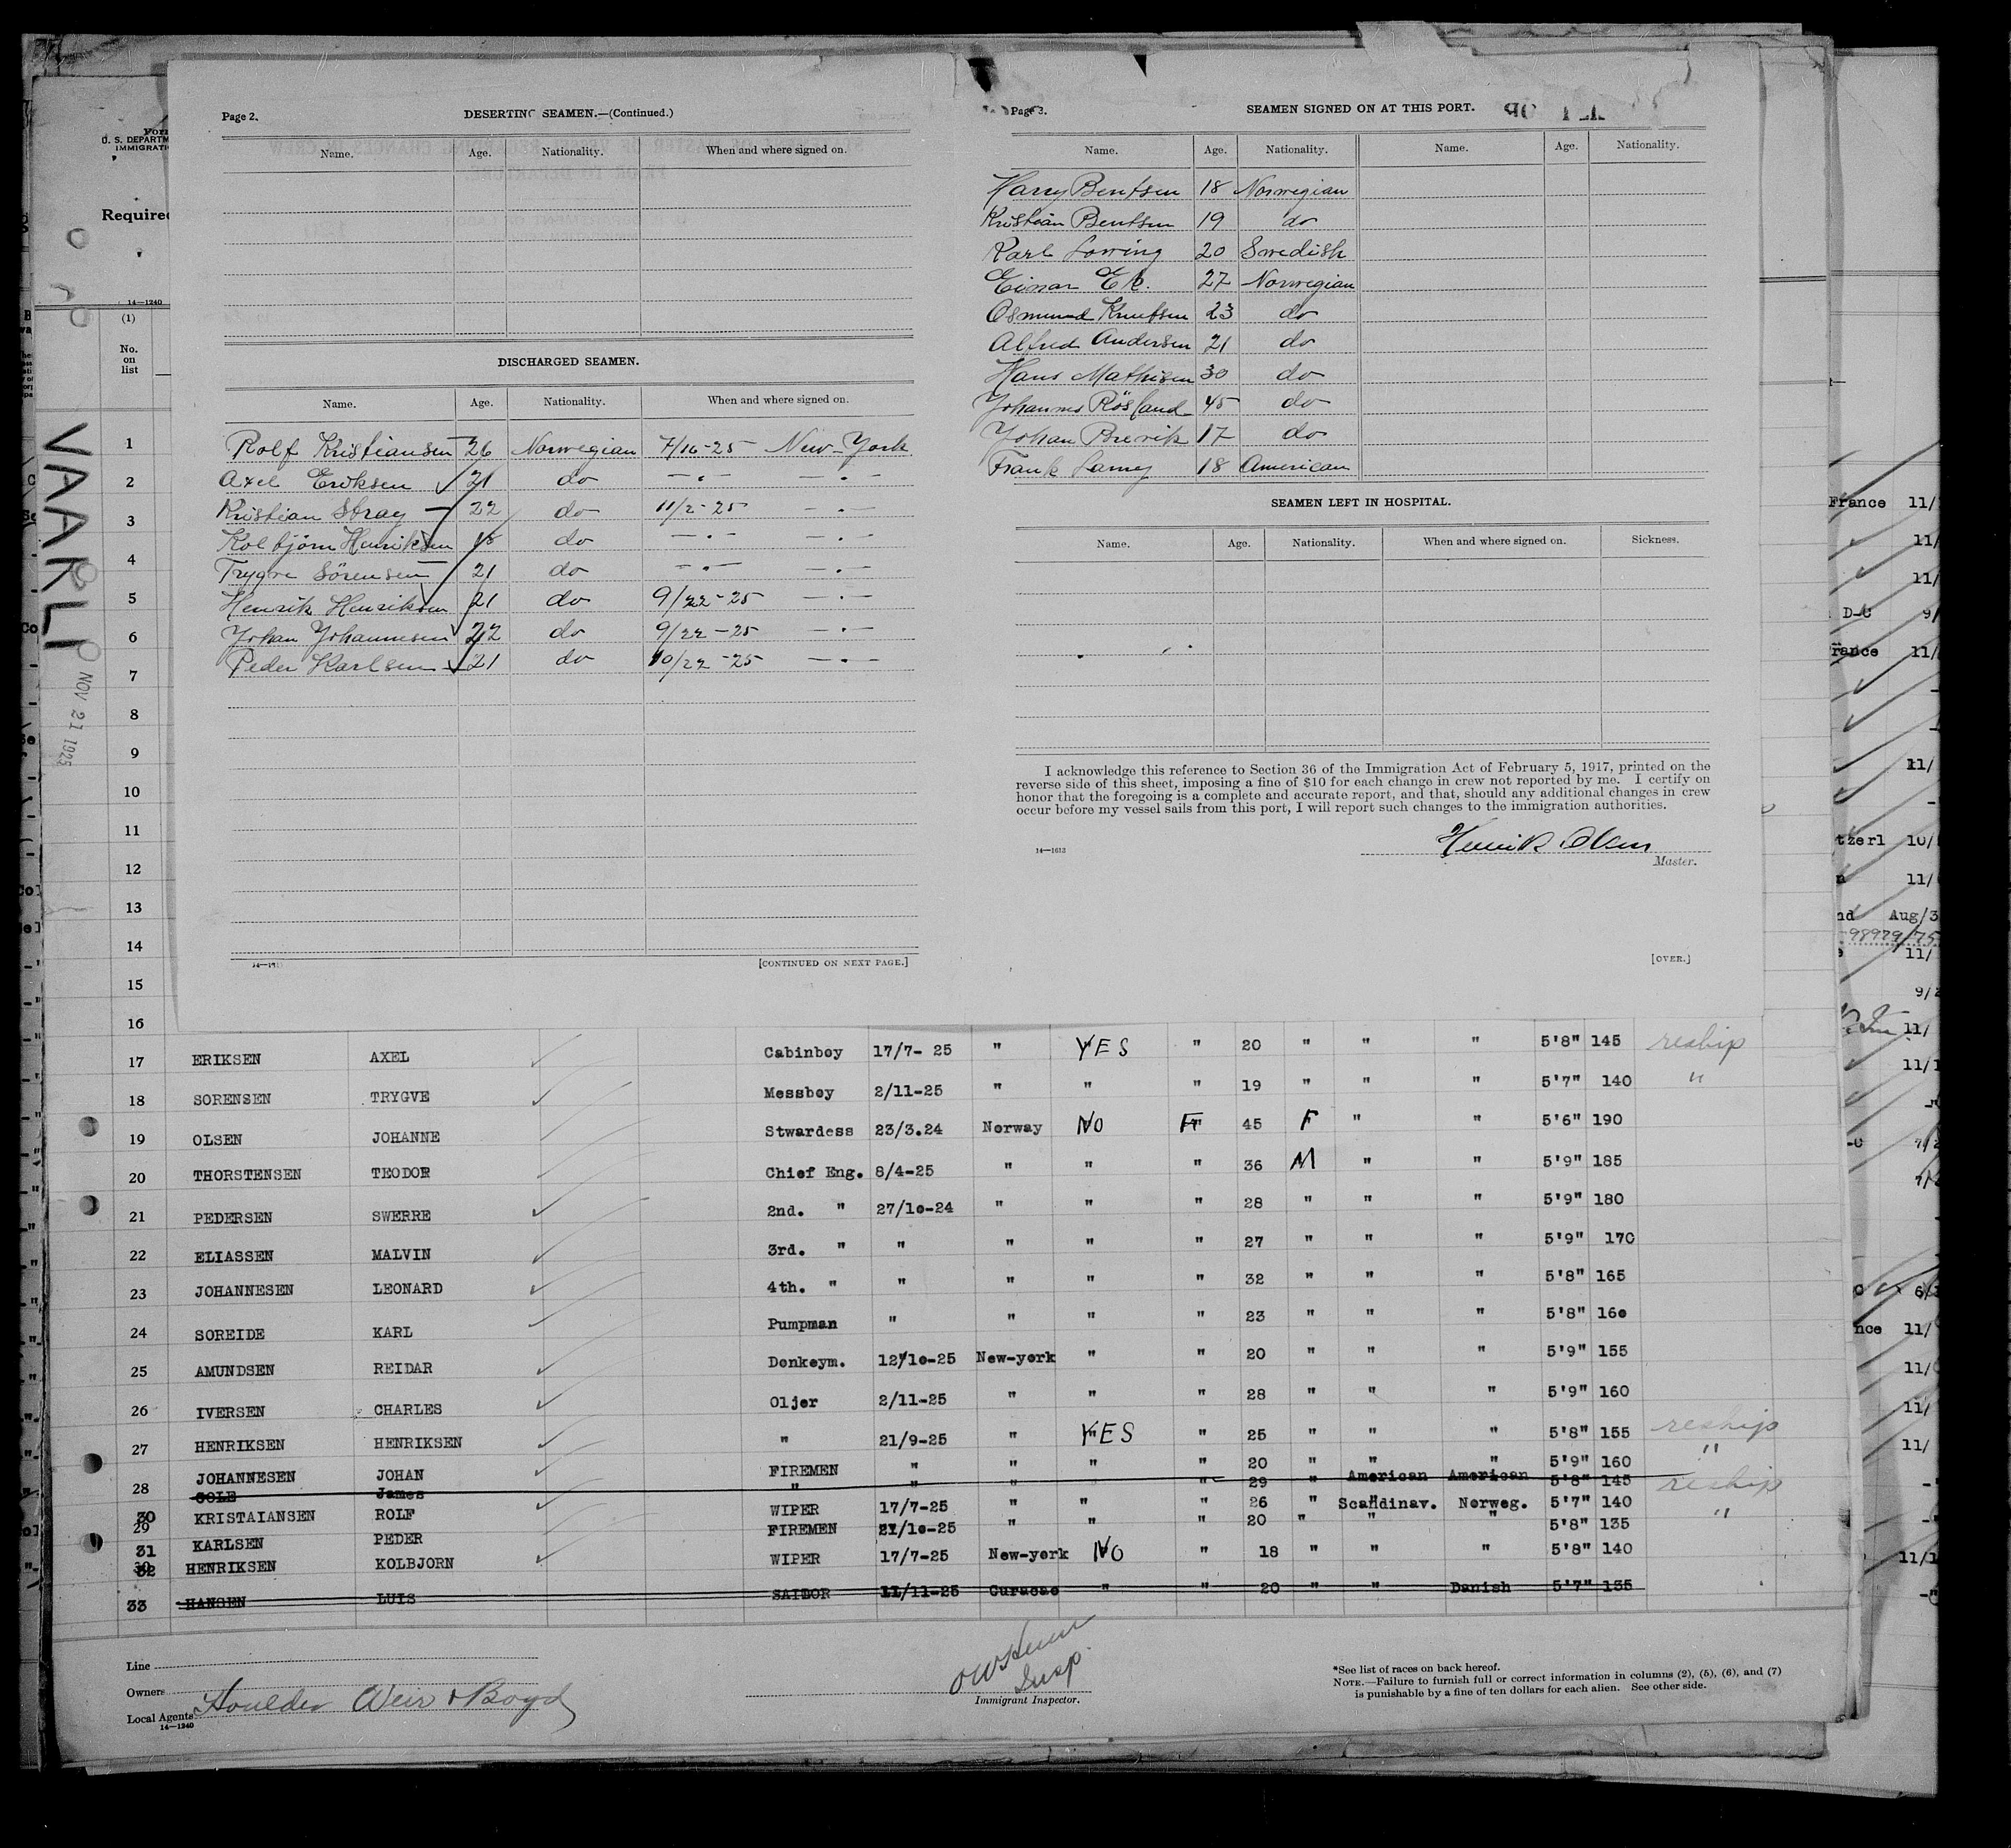 Page 2.
DESERTING SEAMEN.—(Continued.)
Name. Age. Nationality. When and where signed on.
DISCHARGED SEAMEN.
Name. Age. Nationality. When and where signed on.
Rolf Kristiansen 26 Norwegian 7/16-25 New-York
Axel Eriksen 21 do —.— —.—
Kristian Stray 22 do 11/2-25 —.—
Kolbjörn Henriksen 18 do —.— —.—
Trygve Sörensen 21 do —.— —.—
Henrik Henriksen 21 do 9/22-25 —.—
Johan Johannesen 22 do 9/22-25 —.—
Peder Karlsen 21 do 10/22-25 —.—
[CONTINUED ON NEXT PAGE.]
Page 3.
SEAMEN SIGNED ON AT THIS PORT.
Name. Age. Nationality. Name. Age. Nationality.
Harry Bentsen 18 Norwegian
Kristian Bentsen 19 do
Karl 20 Swedish
Einar Ek. 27 Norwegian
Osmund Knutsen 23 do
Alfred Andersen 21 do
Hans Mathisen 30 do
Johannes Rösland 45 do
Johan Brevik 17 do
Frank 18 American
SEAMEN LEFT IN HOSPITAL.
Name. Age. Nationality. When and where signed on. Sickness.
I acknowledge this reference to Section 36 of the Immigration Act of February 5, 1917, printed on the
reverse side of this sheet, imposing a fine of $10 for each change in crew not reported by me. I certify on
honor that the foregoing is a complete and accurate report, and that, should any additional changes in crew
occur before my vessel sails from this port, I will report such changes to the immigration authorities.
Henrik Olsen
14—1613
Master.
[OVER.]
U. S. DEPARTM
IMMIGRATI
Required
14—1240
(1)
No.
on
list
VAARLI
NOV 21 1925
1
2
3
4
5
6
7
8
9
10
11
12
13
14
15
16
17 ERIKSEN AXEL Cabinboy 17/7- 25 " YES " 20 " " " 5'8" 145 reship
18 SORENSEN TRYGVE Messboy 2/11-25 " " " 19 " " " 5'7" 140 "
19 OLSEN JOHANNE Stwardess 23/3.24 Norway NO " 45 F " " 5'6" 190
20 THORSTENSEN TEODOR Chief Eng. 8/4-25 " " " 36 M " " 5'9" 185
21 PEDERSEN SWERRE 2nd. " 27/10-24 " " " 28 " " " 5'9" 180
22 ELIASSEN MALVIN 3rd. " " " " " 27 " " " 5'9" 170
23 JOHANNESEN LEONARD 4th. " " " " " 32 " " " 5'8" 165
24 SOREIDE KARL Pumpman " " " " 23 " " " 5'8" 160
25 AMUNDSEN REIDAR Donkeym. 12/10-25 New-york " " 20 " " " 5'9" 155
26 IVERSEN CHARLES Oljer 2/11-25 " " " 28 " " " 5'9" 160
27 HENRIKSEN HENRIKSEN " 21/9-25 " YES " 25 " " " 5'8" 155 reship
28 JOHANNESEN JOHAN FIREMEN " " " " 20 " " " 5'9" 160 "
COLE James " " " " 29 " American American 5'8" 145
30 29 KRISTAIANSEN ROLF WIPER 17/7-25 " " " 26 " Scandinav. Norweg. 5'7" 140 reship
31 KARLSEN PEDER FIREMEN 21/10-25 " " " 20 " " " 5'8" 135 "
32 HENRIKSEN KOLBJORN WIPER 17/7-25 New-york NO " 18 " " " 5'8" 140
33 HANSEN LUIS SAILOR 11/11-25 Curacao " " 20 " " Danish 5'7" 135
Line
Owners
Local Agents Houlder Weir & Boyd
14—1240
Insp.
Immigrant Inspector.
*See list of races on back hereof.
NOTE.—Failure to furnish full or correct information in columns (2), (5), (6), and (7)
is punishable by a fine of ten dollars for each alien. See other side.
France 11/
11/
11/
D-C 9/
rance 11/
11/
tzerl 10/
11/
nd Aug/3
98979/75
11/
9/2
11/
11/1
nce 11/
11/
11/
11/
11/1